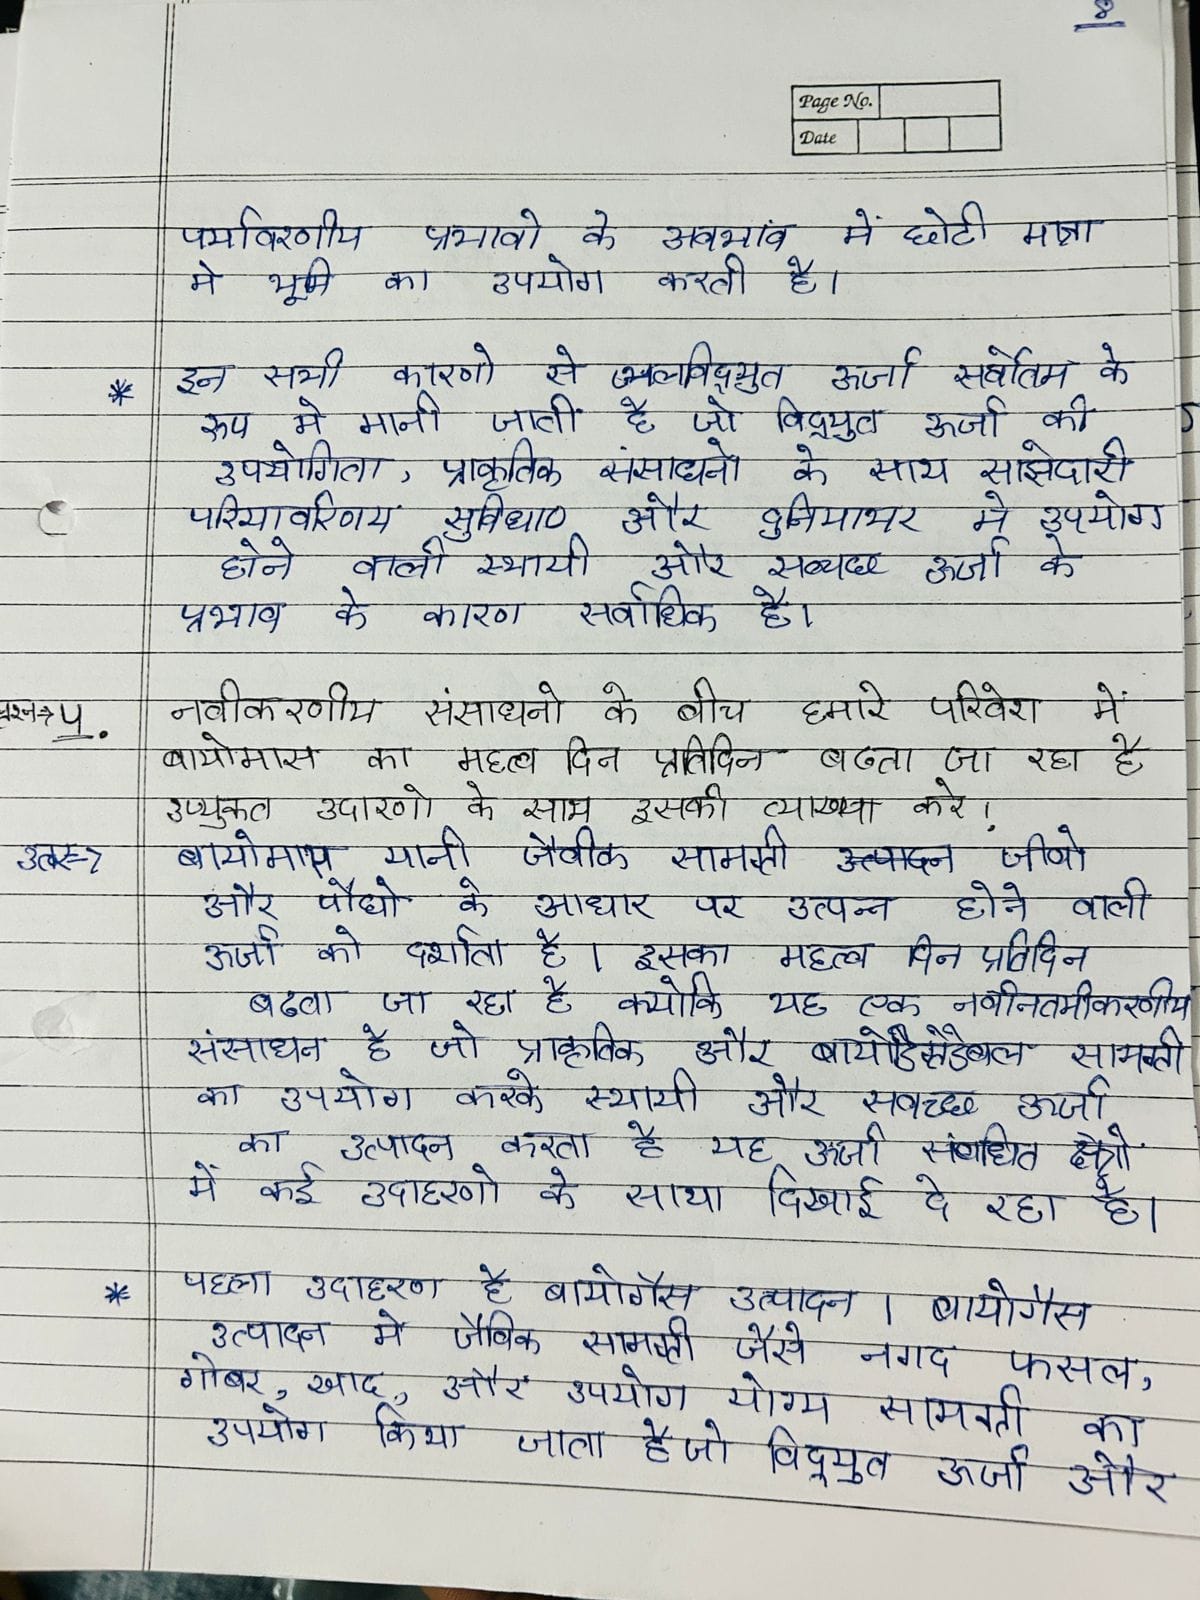 8
Page No.
Date
पर्यावरणीय प्रभावो के अवभांव में छोटी मात्रा
मे भूमि का उपयोग करती है।
* इन सभी कारणो से जलविद्युत ऊर्जा सर्वोतम के
रूप मे मानी जाती है जो विद्युत ऊर्जा की
उपयोगिता, प्राकृतिक संसाधनो के साथ साझेदारी
परियावरिणय सुविधाए और दुनियाभर मे उपयोग
होने वाली स्थायी और सव्यछ ऊर्जा के
प्रभाव के कारण सर्वाधिक है।
प्रश्न→ 5. नवीकरणीय संसाधनो के बीच हमारे परिवेश में
बायोमास का महत्व दिन प्रतिदिन बढता जा रहा है
उप्युक्त उदारणो के साथ इसकी व्याख्या करे।
उत्तर→ बायोमास यानी जैवीक सामग्री उत्पादन जीवो
और पौधो के आधार पर उत्पन्न होने वाली
ऊर्जा को दर्शाता है। इसका महत्व दिन प्रतिदिन
बढता जा रहा है क्योकि यह एक नवीनतमीकरणीय
संसाधन है जो प्राकृतिक और सामग्री
का उपयोग करके स्थायी और सवच्छ ऊर्जा
का उत्पादन करता है यह ऊर्जा संबधित क्षेत्रो
में कई उदाहरणो के साथा दिखाई दे रहा है।
* पहला उदाहरण है बायोगैस उत्पादन। बायोगैस
उत्पादन मे जैविक सामग्री जैसे नगद फसल,
गोबर, खाद, और उपयोग योग्य सामग्री का
उपयोग किया जाता है जो विद्युत ऊर्जा और